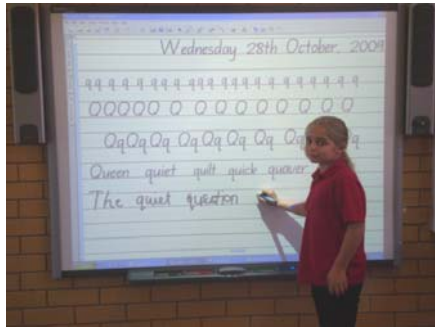 Wednesday 28th October, 2009
q q q q q q q q q q q q q q q q q q
Q Q Q Q Q Q Q Q Q Q Q Q Q
Qq Qq Qq Qq Qq Qq Qq Qq q
Queen quiet quilt quick quaver
The quiet question